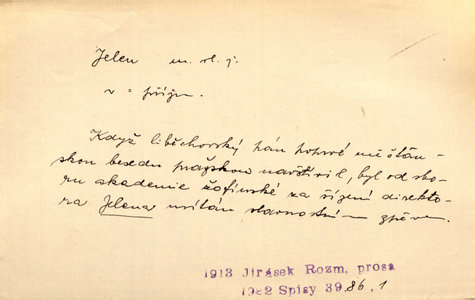 Jelen m. vl. j.
v = příjm.
Když liběchovský pán poprvé měšťan-
skou besedu pražskou navštívil, byl od sbo-
ru akademie žofinské za řízení direkto-
ra Jelena uvítán slavnostním zpěvem.
1913 Jirásek Rozm, prosa
1922 Spisy 39,86,1